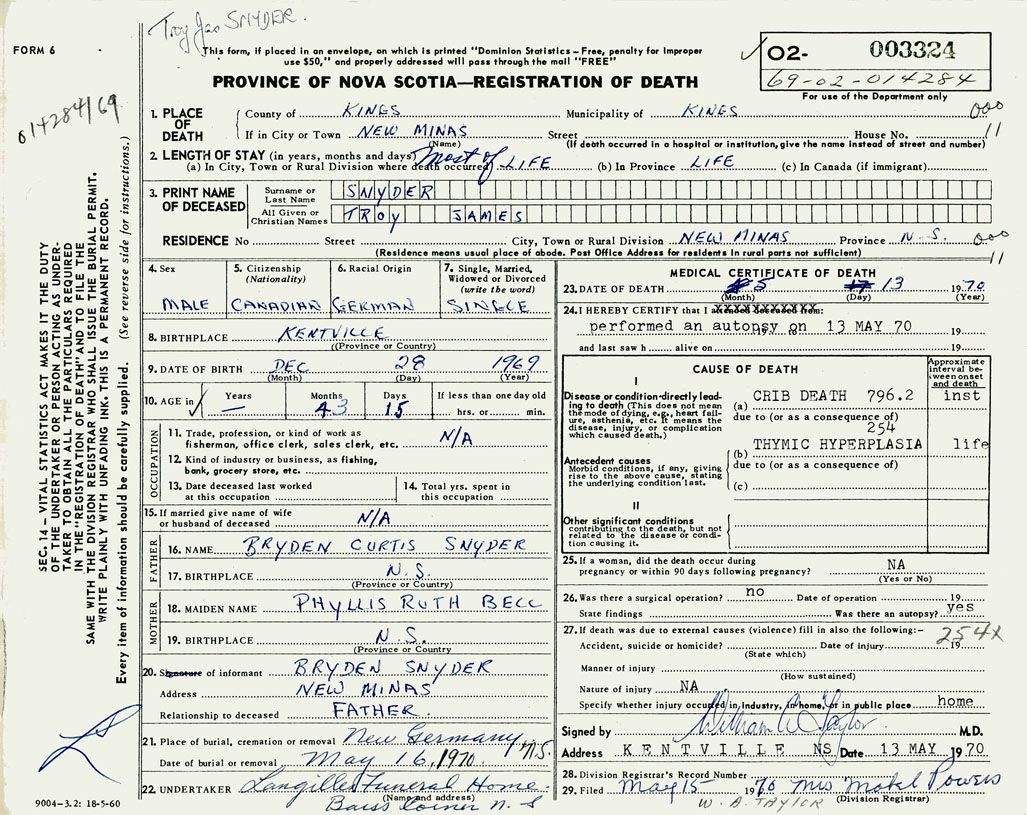 Troy Jas SNYDER.
FORM 6
This form, if placed in an envelope, on which is printed "Dominion Statistics – Free, penalty for improper
use $50," and properly addressed will pass through the mail "FREE"
PROVINCE OF NOVA SCOTIA—REGISTRATION OF DEATH
02- 003324
69-02-014284
For use of the Department only
014284/69
SEC. 14 – VITAL STATISTICS ACT MAKES IT THE DUTY
OF THE UNDERTAKER OR PERSON ACTING AS UNDER-
TAKER TO OBTAIN ALL THE PARTICULARS REQUIRED
IN THE "REGISTRATION OF DEATH" AND TO FILE THE
SAME WITH THE DIVISION REGISTRAR WHO SHALL ISSUE THE BURIAL PERMIT.
WRITE PLAINLY WITH UNFADING INK. THIS IS A PERMANENT RECORD.
Every item of information should be carefully supplied. (See reverse side for instructions.)
1. PLACE OF DEATH
County of KINGS Municipality of KINGS 000
If in City or Town NEW MINAS Street House No. 11
(Name) (If death occurred in a hospital or institution, give the name instead of street and number)
2. LENGTH OF STAY (in years, months and days)
(a) In City, Town or Rural Division where death occurred Most of LIFE (b) In Province LIFE (c) In Canada (if immigrant)
3. PRINT NAME OF DECEASED
Surname or Last Name SNYDER
All Given or Christian Names TROY JAMES
RESIDENCE No Street City, Town or Rural Division NEW MINAS Province N.S. 000
(Residence means usual place of abode. Post Office Address for residents in rural parts not sufficient) 11
4. Sex MALE
5. Citizenship (Nationality) CANADIAN
6. Racial Origin GERMAN
7. Single, Married, Widowed or Divorced (write the word) SINGLE
8. BIRTHPLACE KENTVILLE
(Province or Country)
9. DATE OF BIRTH DEC 28 1969
(Month) (Day) (Year)
10. AGE in Years — Months 4 3 Days 15 If less than one day old hrs. or min.
OCCUPATION
11. Trade, profession, or kind of work as
fisherman, office clerk, sales clerk, etc. N/A
12. Kind of industry or business, as fishing,
bank, grocery store, etc.
13. Date deceased last worked
at this occupation
14. Total yrs. spent in
this occupation
15. If married give name of wife
or husband of deceased N/A
FATHER
16. NAME BRYDEN CURTIS SNYDER
17. BIRTHPLACE N.S.
(Province or Country)
MOTHER
18. MAIDEN NAME PHYLLIS RUTH BELL
19. BIRTHPLACE N.S.
(Province or Country)
20. Signature of informant BRYDEN SNYDER
Address NEW MINAS
Relationship to deceased FATHER.
21. Place of burial, cremation or removal New Germany, N.S.
Date of burial or removal May 16, 1970
22. UNDERTAKER Langilles Funeral Home.
(Name and address)
Corner N. S
9004–3.2: 18-5-60
MEDICAL CERTIFICATE OF DEATH
23. DATE OF DEATH 5 17 13 1970
(Month) (Day) (Year)
24. I HEREBY CERTIFY that I attended deceased from:
performed an autopsy on 13 MAY 70 19
and last saw h alive on 19
CAUSE OF DEATH
Approximate interval between onset and death
I
Disease or condition directly leading to death (This does not mean the mode of dying, e.g., heart failure, asthenia, etc. It means the disease, injury, or complication which caused death.)
(a) CRIB DEATH 796.2 inst
due to (or as a consequence of)
254
(b) THYMIC HYPERPLASIA life
due to (or as a consequence of)
Antecedent causes
Morbid conditions, if any, giving rise to the above cause, stating the underlying condition last.
(c)
II
Other significant conditions
contributing to the death, but not related to the disease or condition causing it.
25. If a woman, did the death occur during
pregnancy or within 90 days following pregnancy? NA
(Yes or No)
26. Was there a surgical operation? no Date of operation 19
State findings Was there an autopsy? yes
27. If death was due to external causes (violence) fill in also the following:- 254X
Accident, suicide or homicide? Date of injury 19
(State which)
Manner of injury
(How sustained)
Nature of injury NA
Specify whether injury occurred in industry, in home, or in public place home
Signed by William W Taylor M.D.
Address KENTVILLE NS Date 13 MAY 1970
28. Division Registrar's Record Number
29. Filed May 15 1970 Mrs Powers
W. A. TAYLOR (Division Registrar)